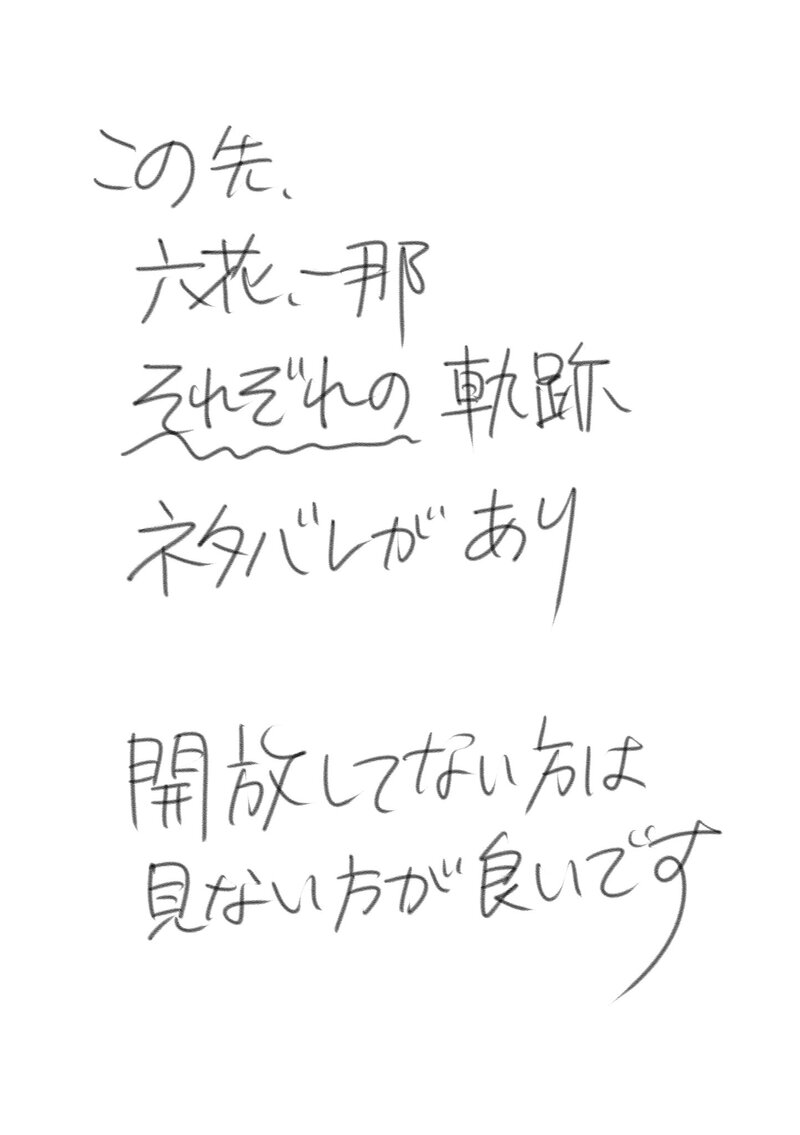 この先、
六花、一那
それぞれの軌跡
ネタバレがあり
開放してない方は
見ない方が良いです